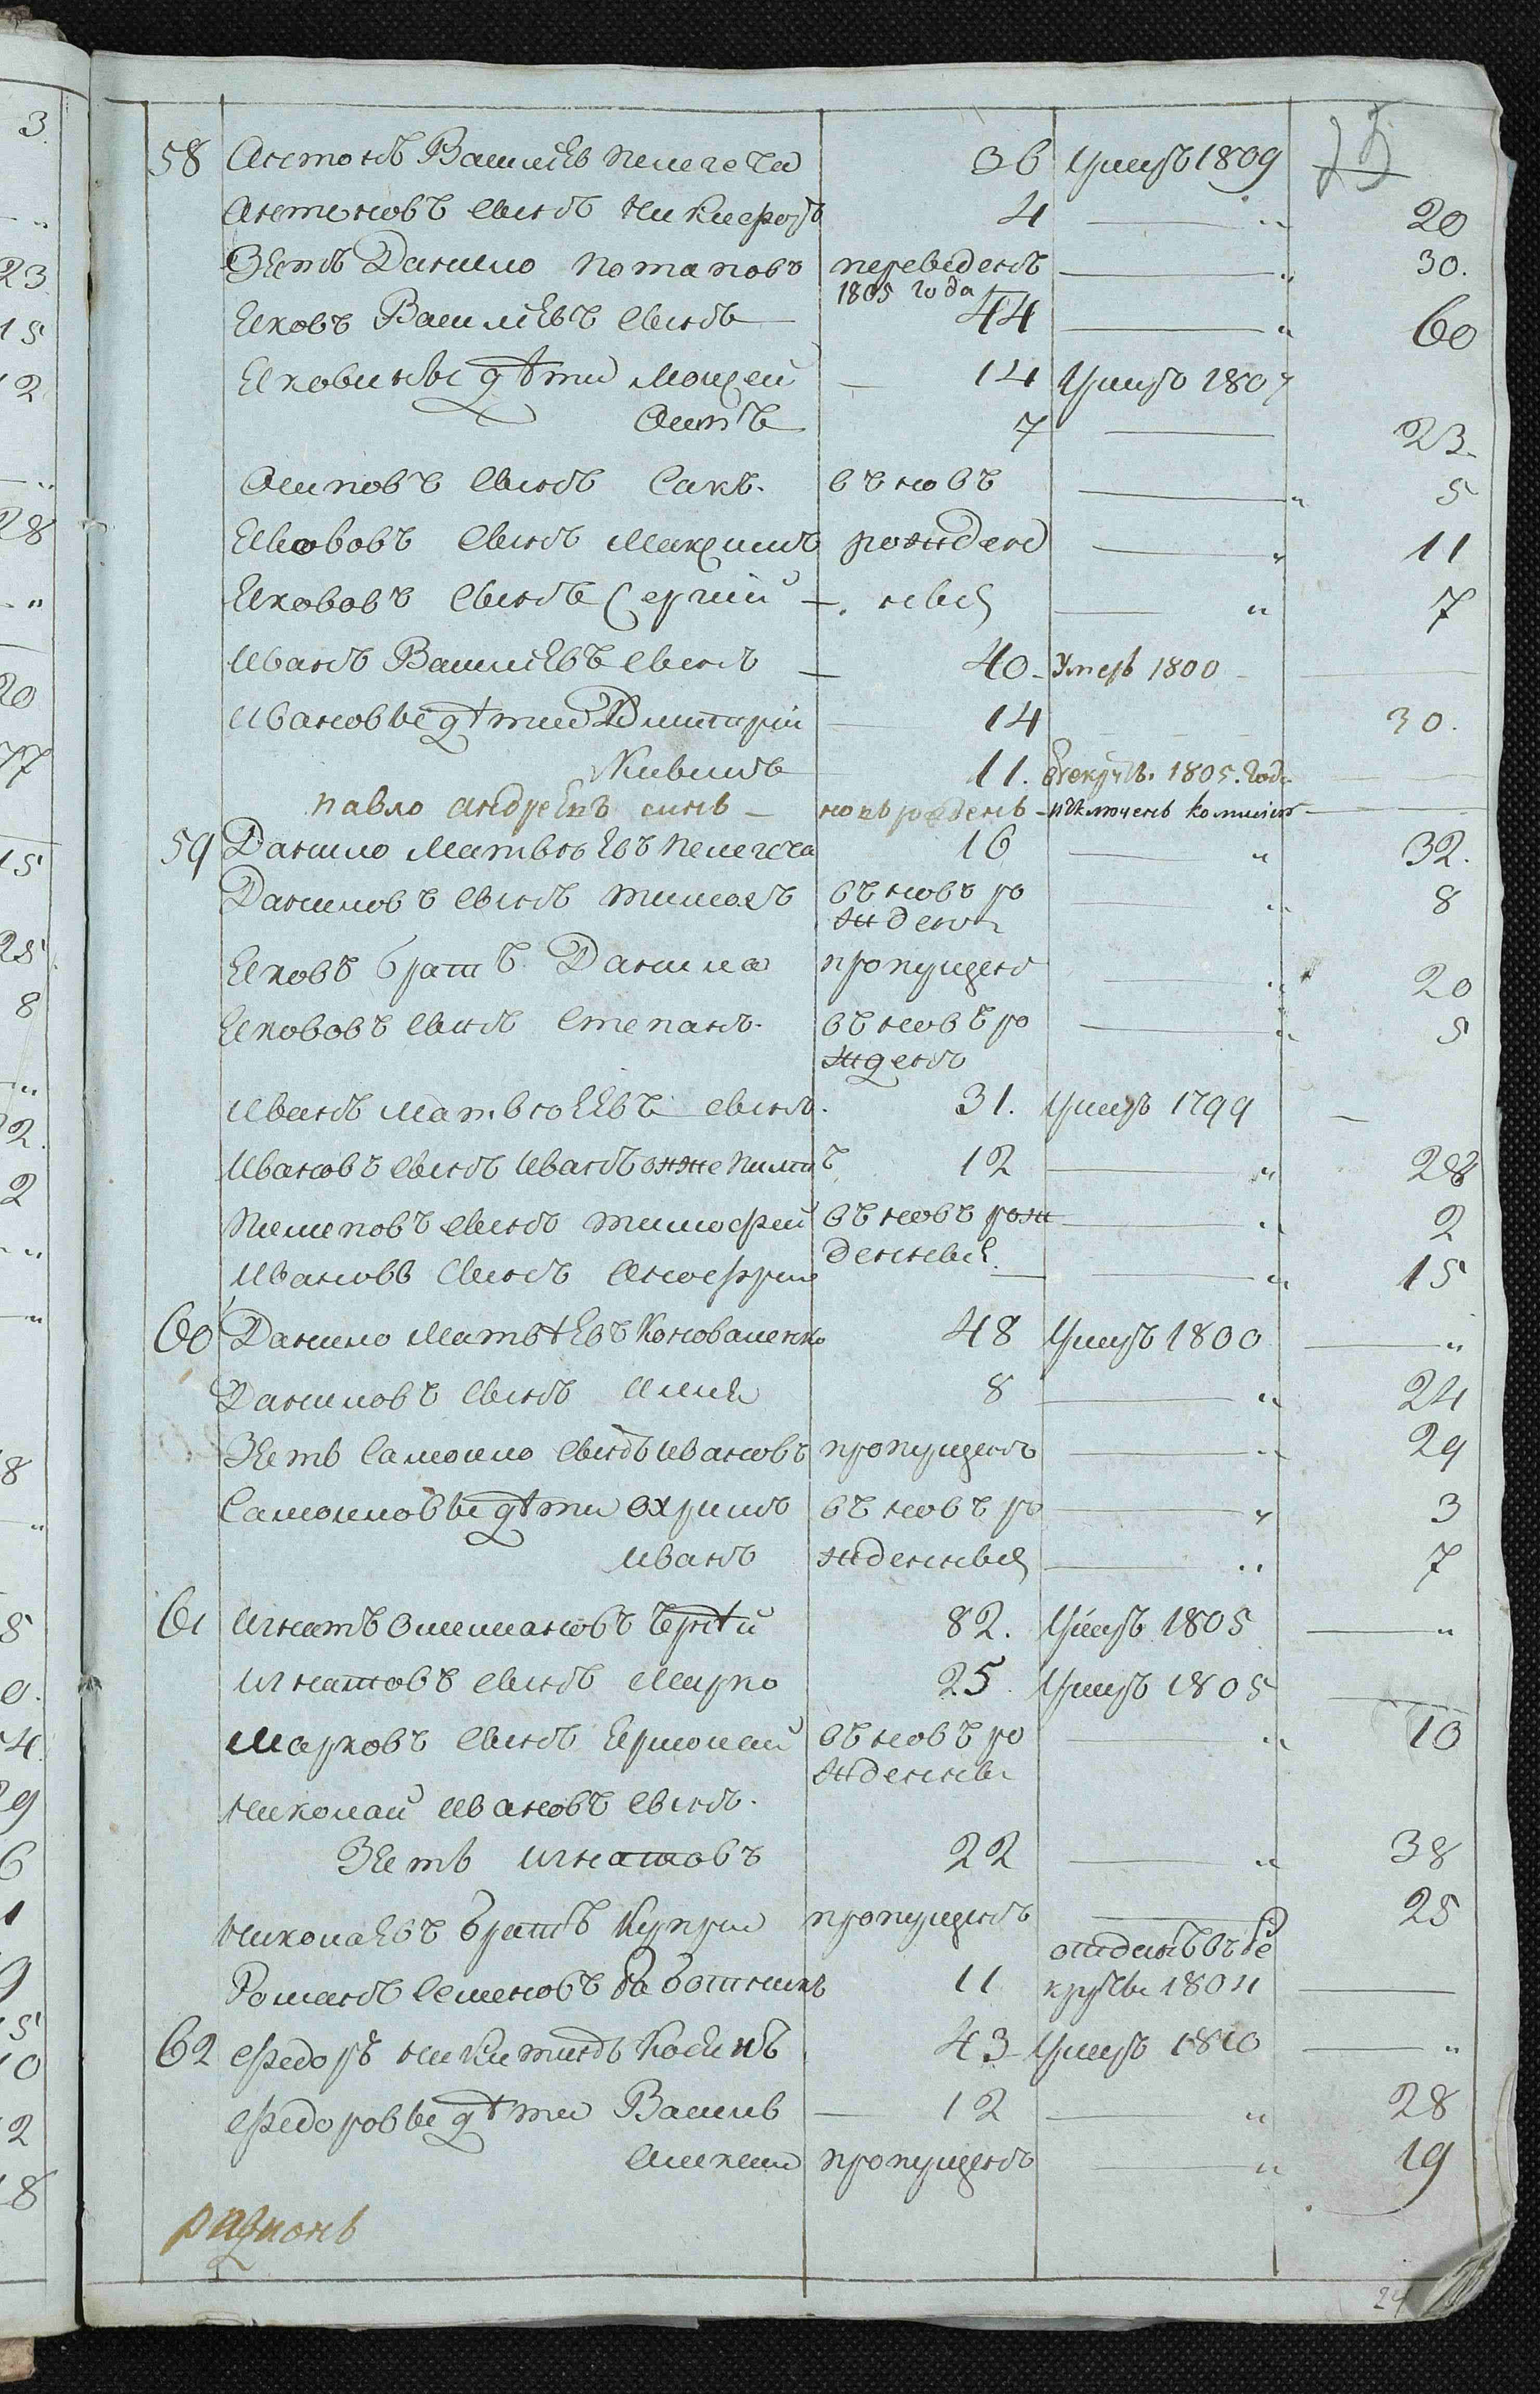 58 Антонъ Васильевъ Пелегеча 36 Умеръ 1809
Антоновъ сынъ Никифоръ 4 — " 20
Зять Данило Потаповъ переведенъ — " 30.
1805 года
Яковъ Васильевъ сынъ 44 — " 60
Яковины дѣти Мойсей — 14 Умеръ 1807
Осипъ 7 — 23.
Осиповъ сынъ Сакъ. въновъ — " 5
Яковъ сынъ Максимъ рожден — " 11
Яковъ сынъ Сергий —. ныя — " 7
Иванъ Васильевъ сынъ — 40 - Умеръ 1800 —
Ивановы дѣти Дмитрий — 14 30.
11. Рекрутъ. 1805. года —
Павло Андреевъ синъ — новъ рожденъ —
59 Данило Матвѣевъ Пелегеча 16 — " 32.
Даниловъ сынъ въновъ ро — " 8
жденъ
Яковъ братъ Данила пропущенъ — " 20
Яковъ сынъ Степанъ. въновъ ро — " 5
жденъ
Иванъ Матвѣевъ сынъ. 31. Умеръ 1799 —
Ивановъ сынъ Иванъ онже Пилипъ 12 — " 28
Пилиповъ сынъ Тимофей въновъ рож — " 2
денныя.
Ивановъ сынъ Онофрий — — " 15
60 Данило Матвѣевъ Коноваленко 48 Умеръ 1800 — "
Даниловъ сынъ Илия 8 — " 24
Зять Самойло сынъ Ивановъ пропущенъ — " 29
Самойловы дѣти Охримъ въновъ ро — " 3
Иванъ жденныя — " 7
61 Игнатъ Омельяновъ 82. Умеръ 1805 — "
Игнатовъ сынъ Марко 25. Умеръ 1805 —
Марковъ сынъ Ермолай въновъ ро — " 10
жденны
Николай Ивановъ сынъ.
Зять Игнатовъ 22 — " 38
Николаевъ братъ Куприй пропущенъ — 25
отданъ въ ре
Романъ Семеновъ Работникъ 11 круты 1804 —
62 Федоръ Никитинъ 43 - Умеръ 1810 — "
Федоровы дѣти Василь — 12 — " 28
Алексей пропущенъ — " 19
24